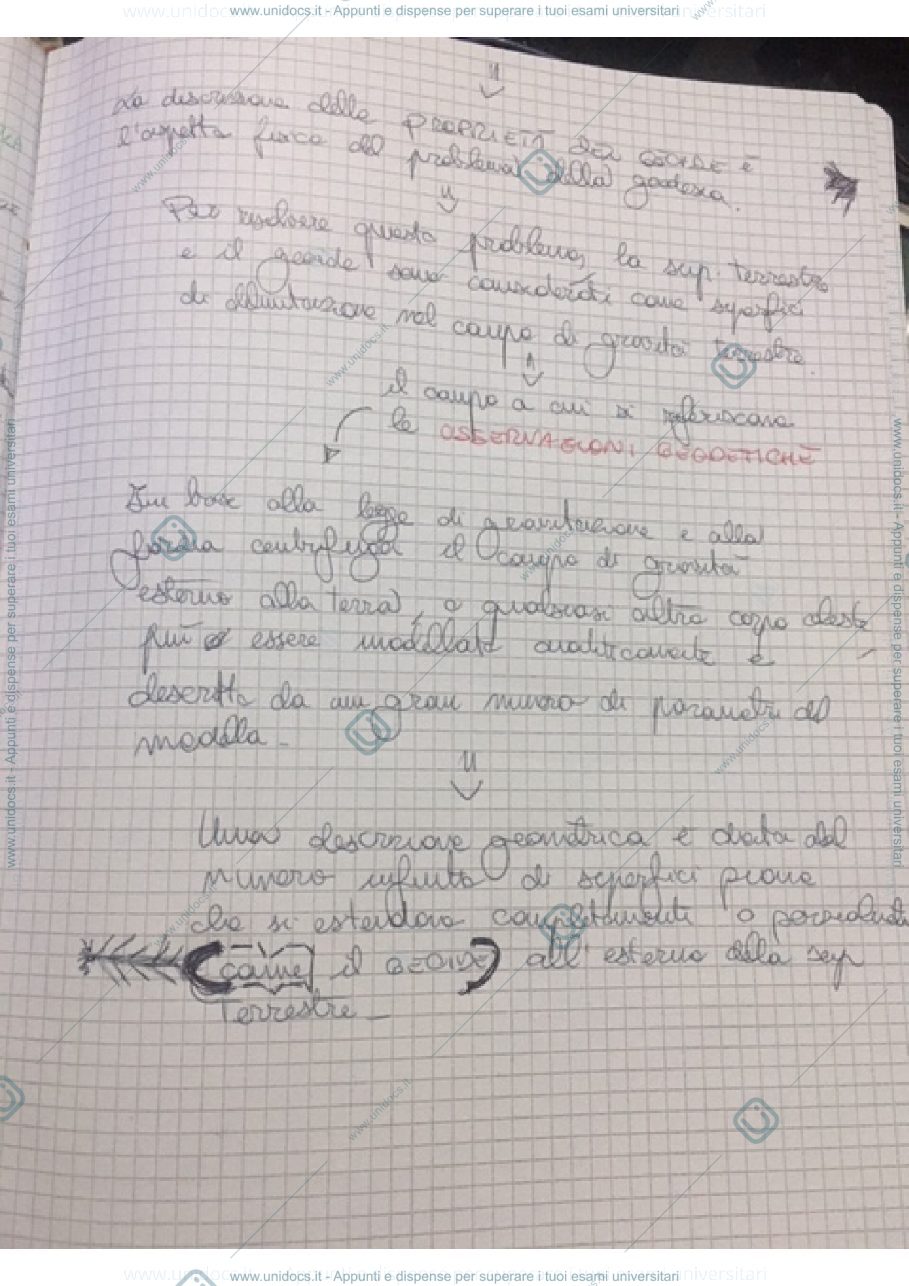 www.unidocs.it - Appunti e dispense per superare i tuoi esami universitari
La descrizione delle PROPRIETÀ DEL GEOIDE è
l'aspetto fisico del problema della geodesia.
Per risolvere questo problema, la sup. terrestre
e il geoide sono considerati come superfici
di delimitazione nel campo di gravità terrestre.
il campo a cui si riferiscono
le OSSERVAZIONI GEODETICHE
In base alla legge di gravitazione e alla
forza centrifuga il campo di gravità
esterno alla terra, o qualsiasi altro corpo celeste
può essere modellato analiticamente e
descritto da un gran numero di parametri del
modello.
Una descrizione geometrica è data dal
numero infinito di superfici piane
che si estendono completamente o
(come il GEOIDE) all'esterno della sup
Terrestre.
www.unidocs.it - Appunti e dispense per superare i tuoi esami universitari